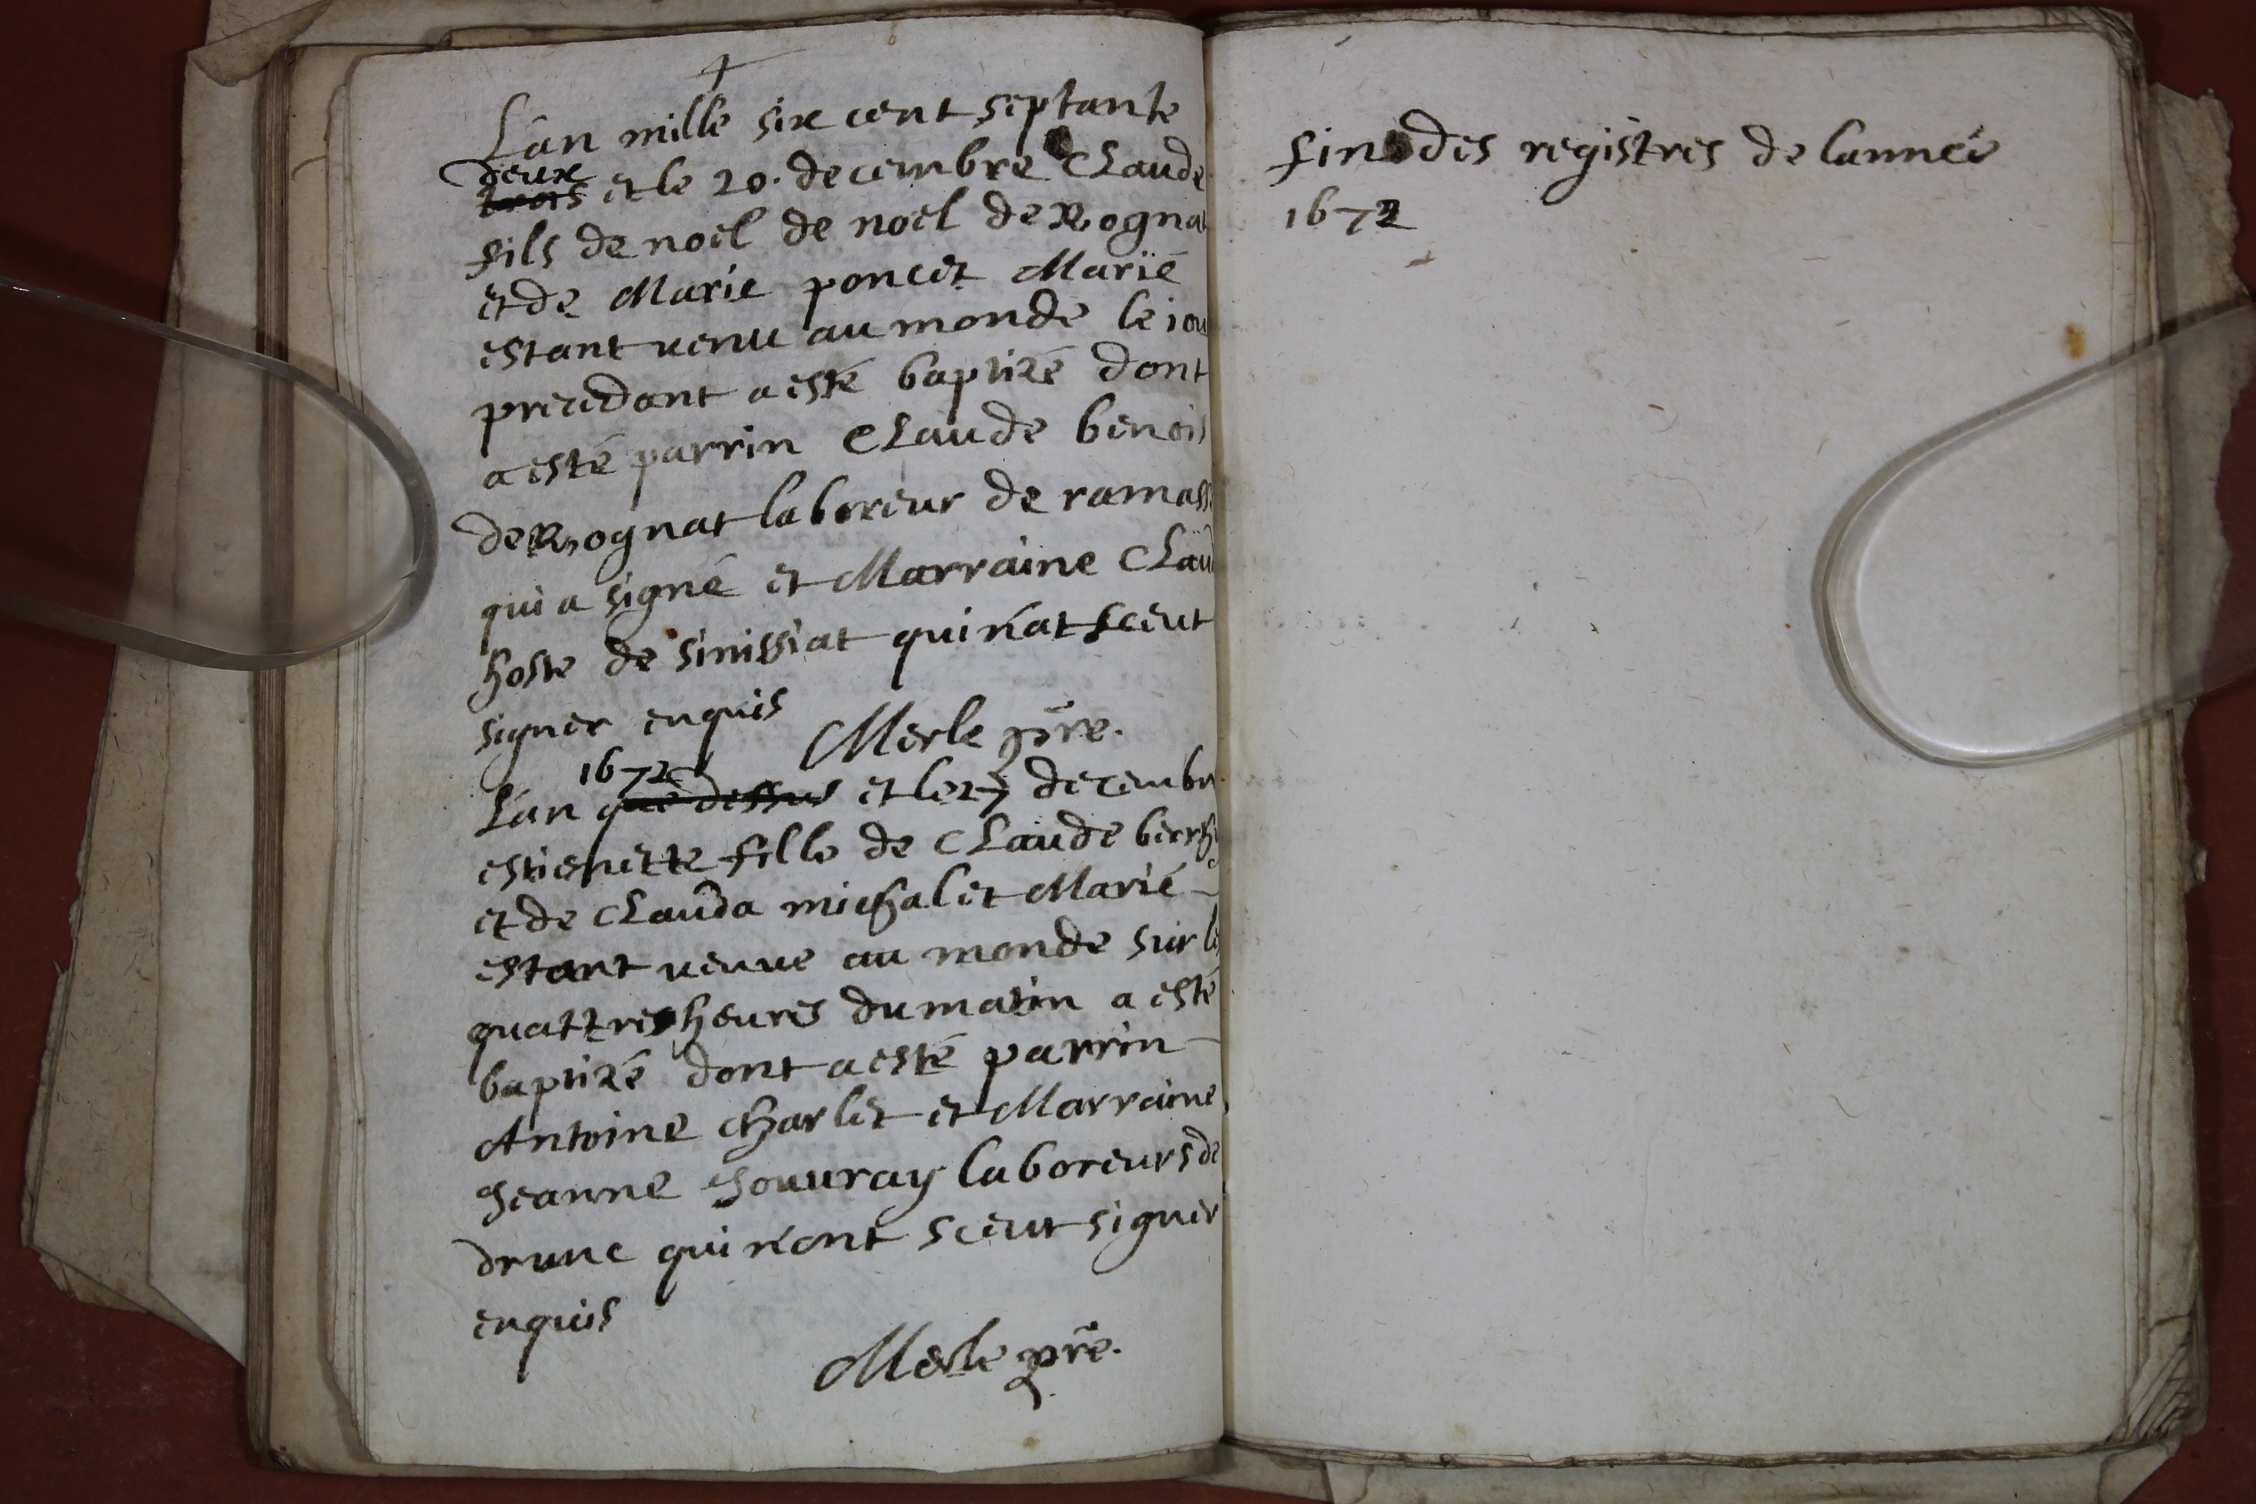 +
L'an mille six cent septante
deux
trois et le 20. decembre Claude
fils de noel de noel de Rogna
et de Marie poncet Marié
estant venu au monde le iou
precedant a esté baptizé dont
a esté parrin Claude benois
de Rognat laboreur de ramass
qui a signé et Marraine Clau
hoste de sinissiat qui n'at sceut
signer enquis
Merle pre.
1672
L'an que dessus et le 27 decembre
estienette fille de Claude
et de Clauda michalet Marié
estant venue au monde sur le
quattres heures du matin a esté
baptizé dont a esté parrin
Antoine Charlet et Marraine
Jeanne laboreurs de
qui n'ont sceut signer
enquis
Merle pre.
fin des registres de lannée
1672